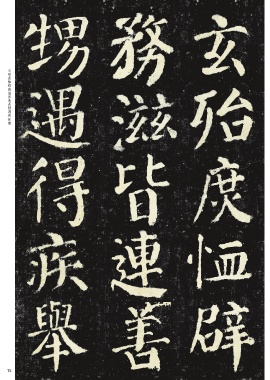 玄殆庶恤辟
務滋皆連善
甥遇得疾舉